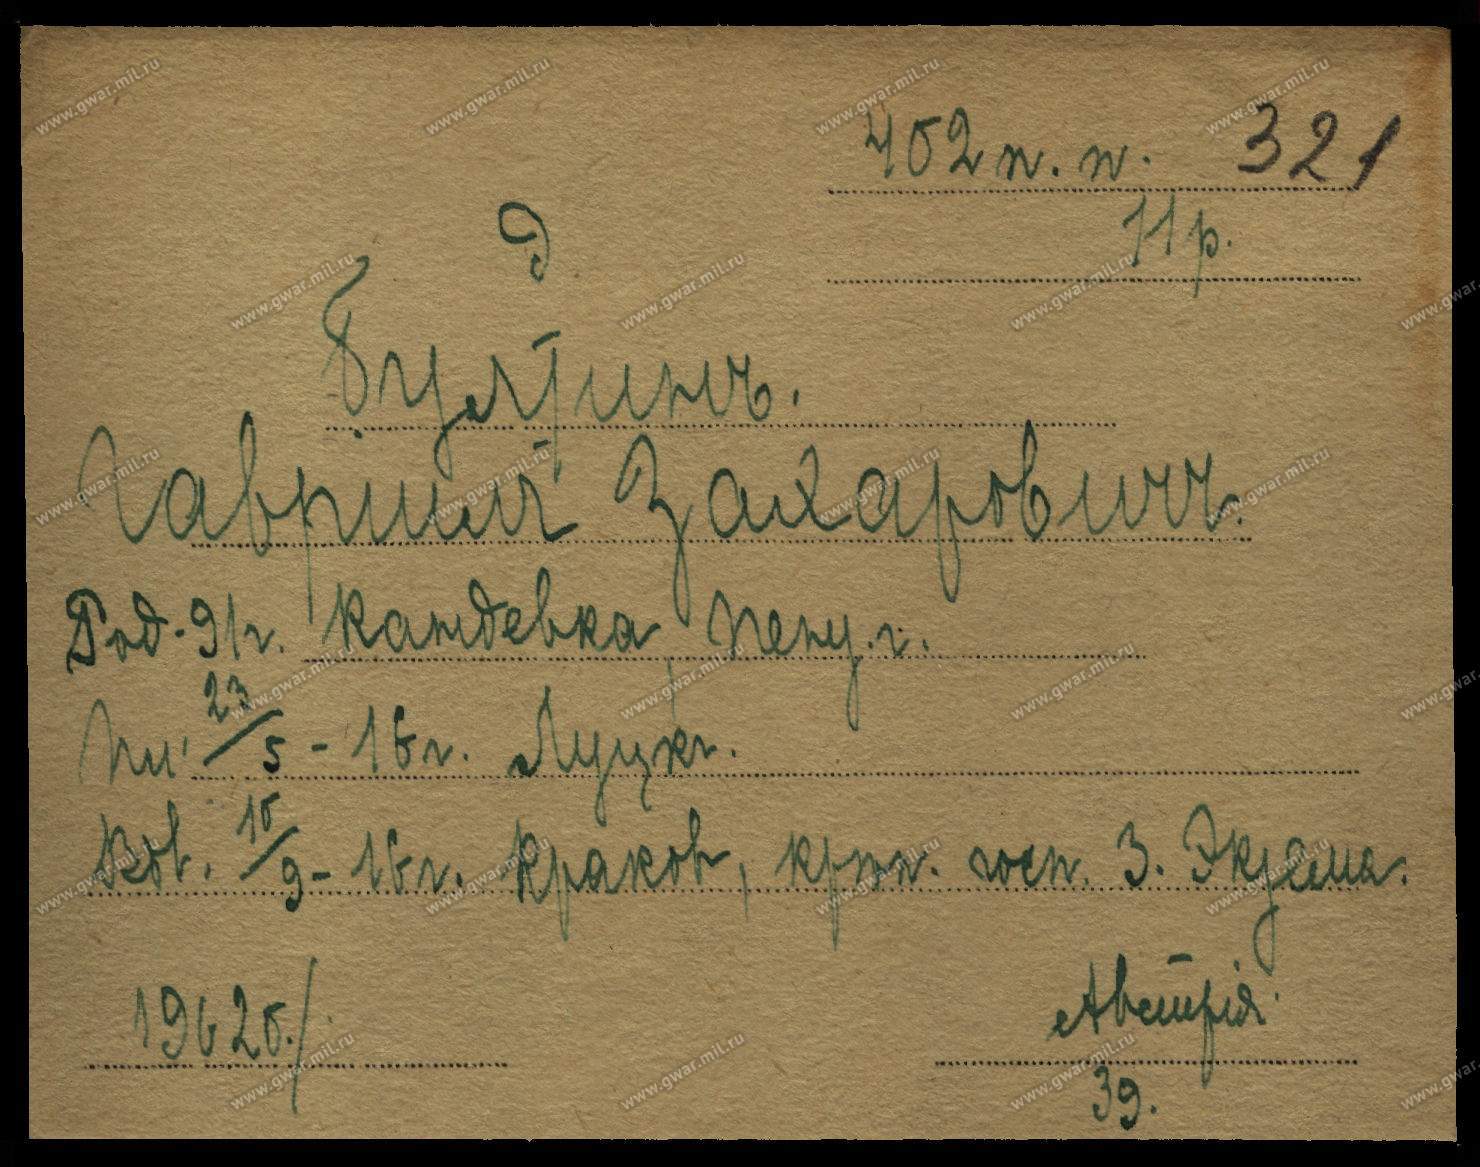 402 п. п. 321
11 р.
Д
Булгинъ.
Гавріилъ Захаровичъ.
Род. 91 г. Кандевка, Пенз. г.
Пл. 23/5 - 16 г. Луцкъ.
Ков. 15/9 - 16 г. Краков, крѣп. госп. 3. Экзема.
19625./
Австрія.
39.